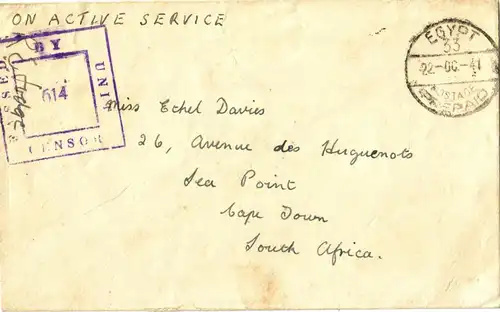 ON ACTIVE SERVICE
PASSED
BY
UNIT
CENSOR
614
EGYPT
53
22-OC.-41
POSTAGE
PREPAID
Miss Ethel Davies
26, Avenue des Huguenots
Sea Point
Cape Town
South Africa.